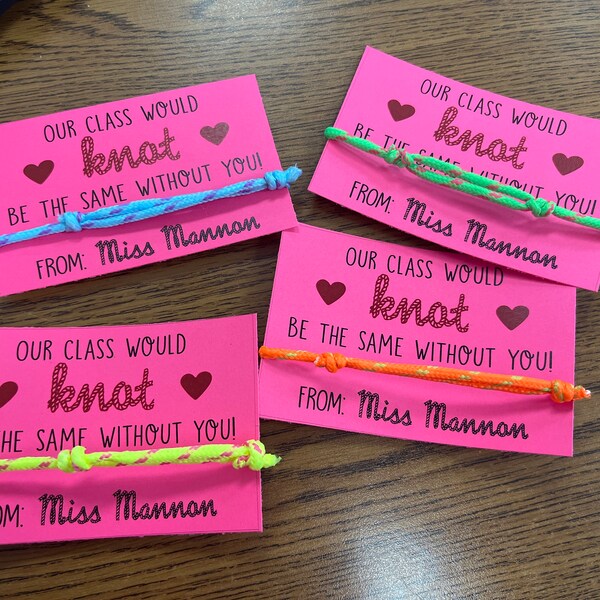 OUR CLASS WOULD
knot
BE THE SAME WITHOUT YOU!
FROM: Miss Mannon
OUR CLASS WOULD
knot
BE THE SAME WITHOUT YOU!
FROM: Miss Mannon
OUR CLASS WOULD
knot
THE SAME WITHOUT YOU!
Miss Mannon
OUR CLASS WOULD
knot
BE THE SAME WITHOUT YOU!
FROM: Miss Mannon